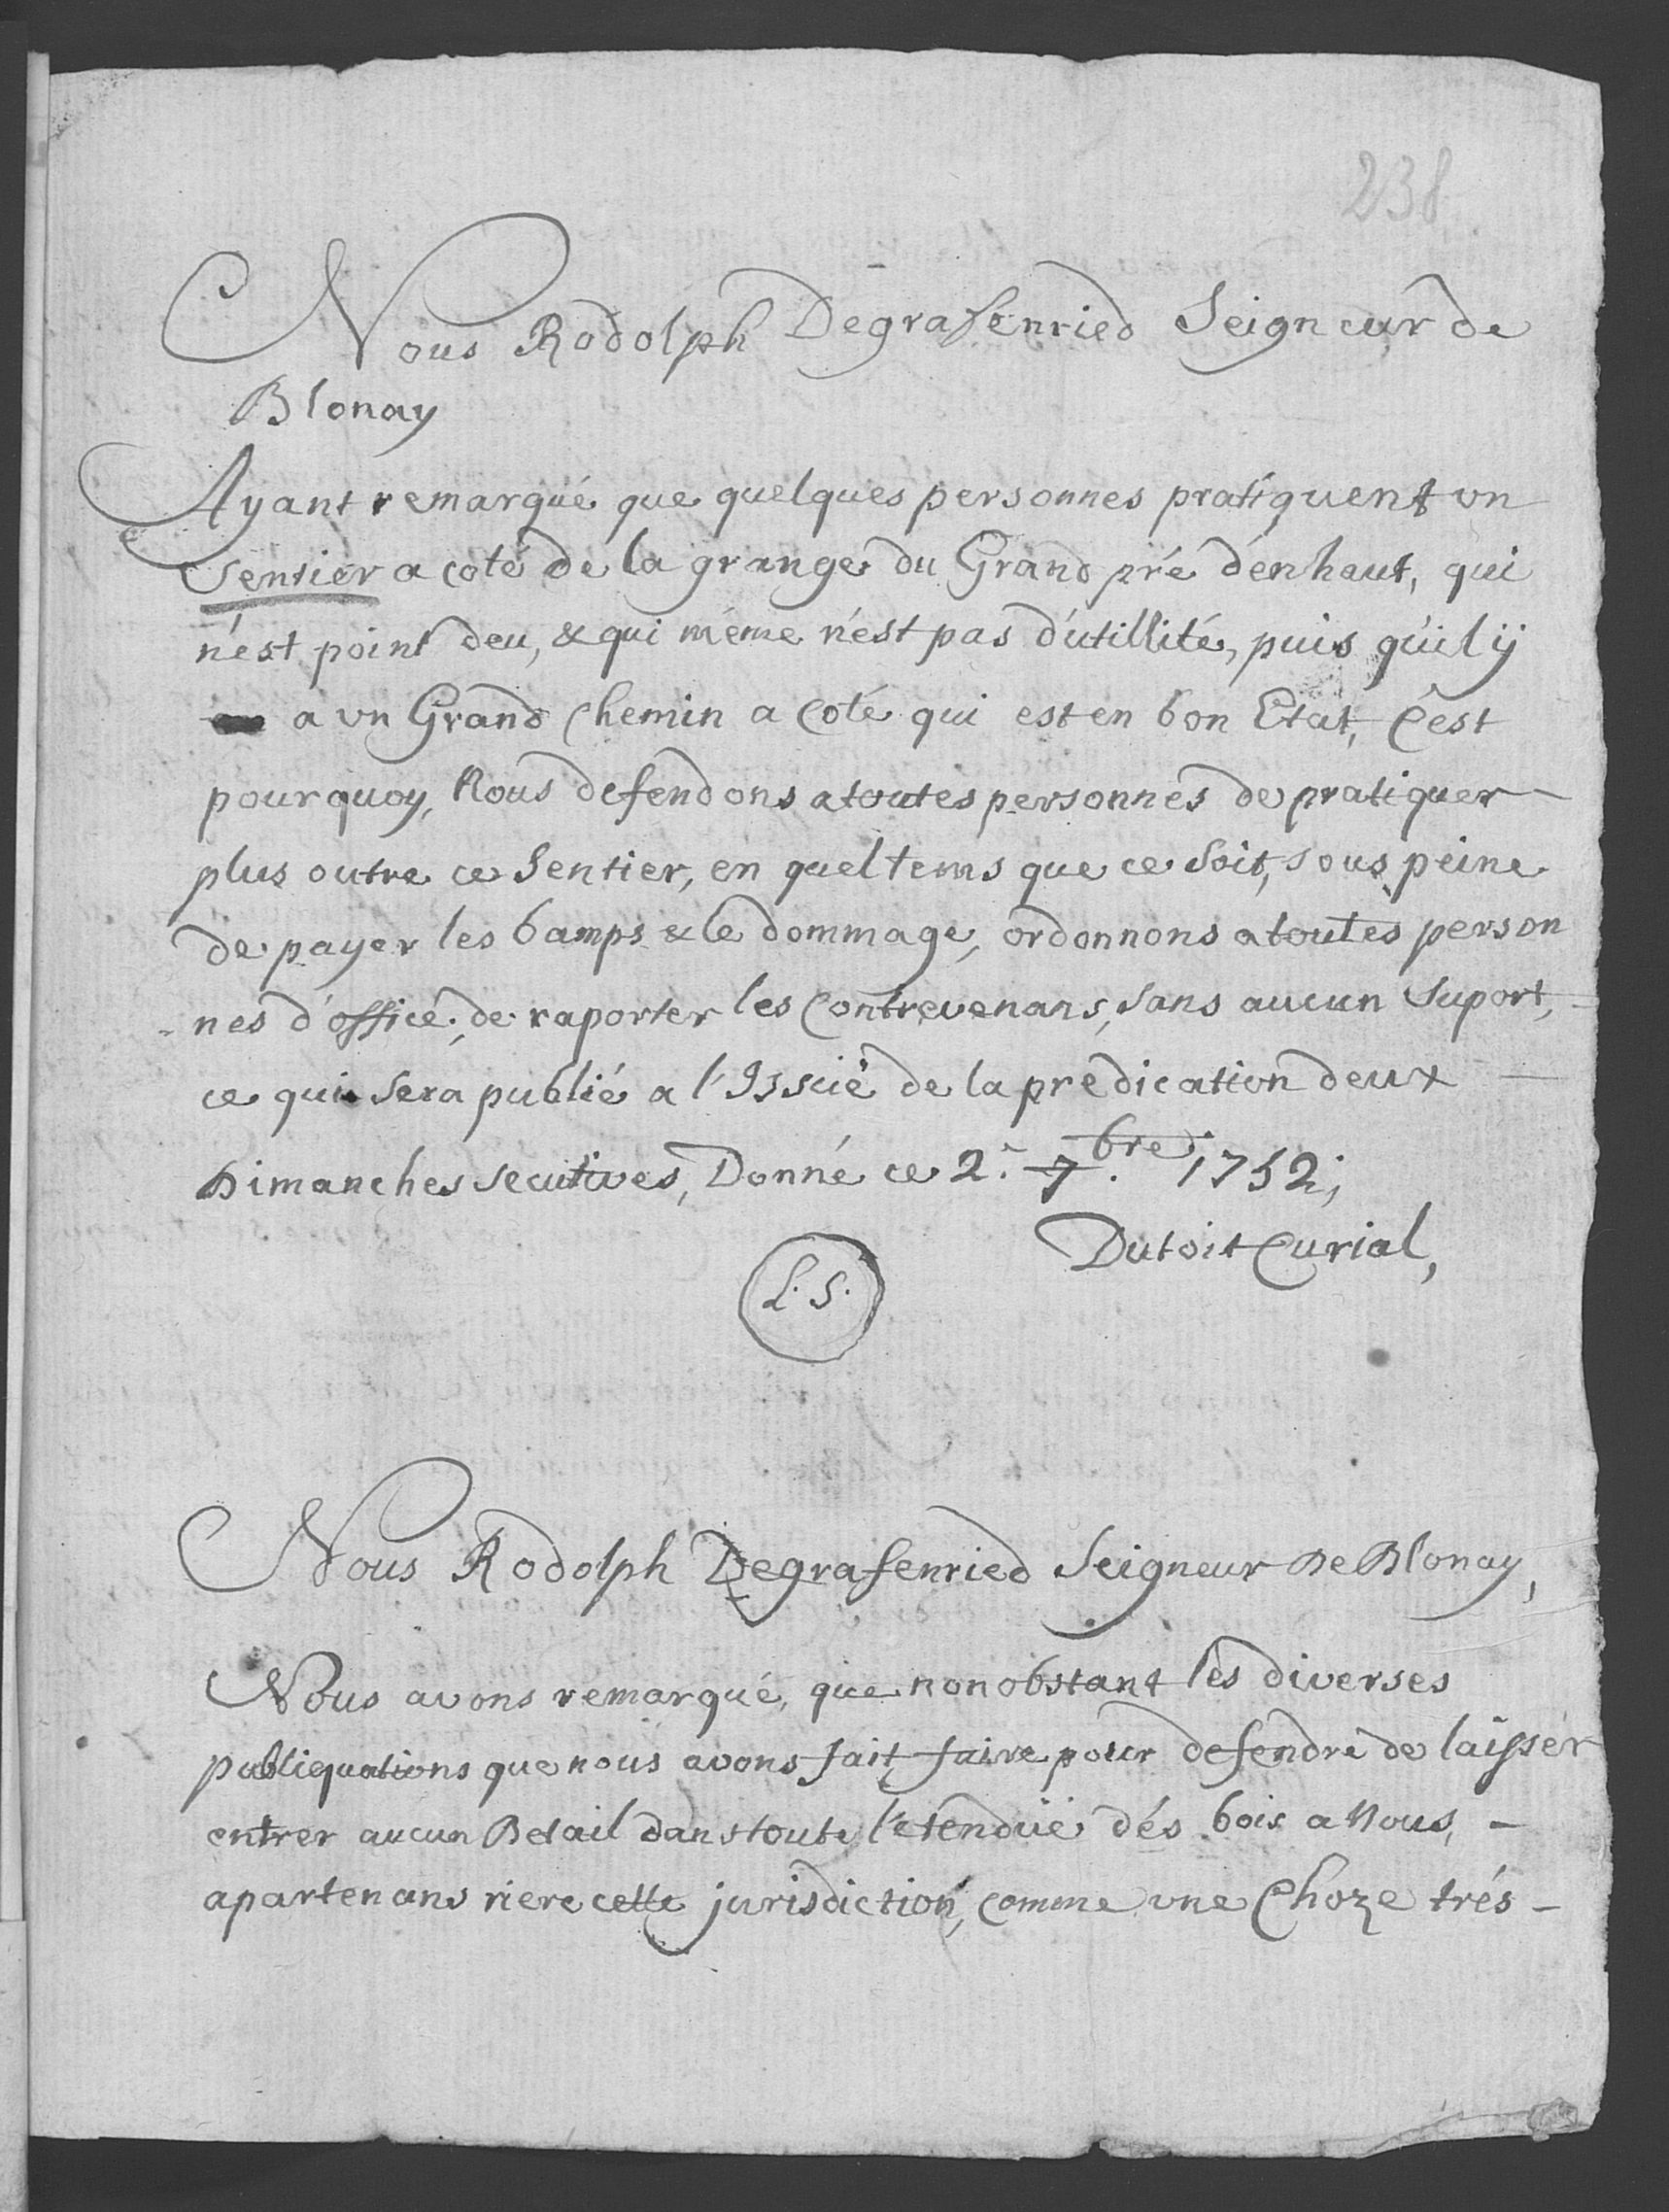 238
Nous Rodolph Degrafenried Seigneur de
Blonay
Ayant remarqué que quelques personnes pratiquent vn
Sentier a coté de la grange du Grand pré d'enhaut, qui
n'est point deu, & qui méme n'est pas d'utillité, puis qu'il ÿ
a vn Grand Chemin a Coté qui est en bon Etat, C'est
pourquoy, Nous defendons a toutes personnes de pratiquer
plus outre ce Sentier, en quel tems que ce Soit, sous peine
de payer les bamps & le dommage, ordonnons a toutes person
nes d'office, de raporter les Contrevenans, sans aucun Suport,
ce qui Sera publié a l'Issüe de la predication deux
Dimanches secutives, Donné ce 2. 7.bre 1752;
Dutoit Curial,
L. S.
Nous Rodolph Degrafenried Seigneur De Blonay,
Nous avons remarqué, que nonobstant les diverses
publiquations que nous avons fait faire pour defendre de laisser
entrer aucun Betail dans toute l'etendüe dés bois a Nous,
apartenans riere cette jurisdiction, comme vne Choze trés